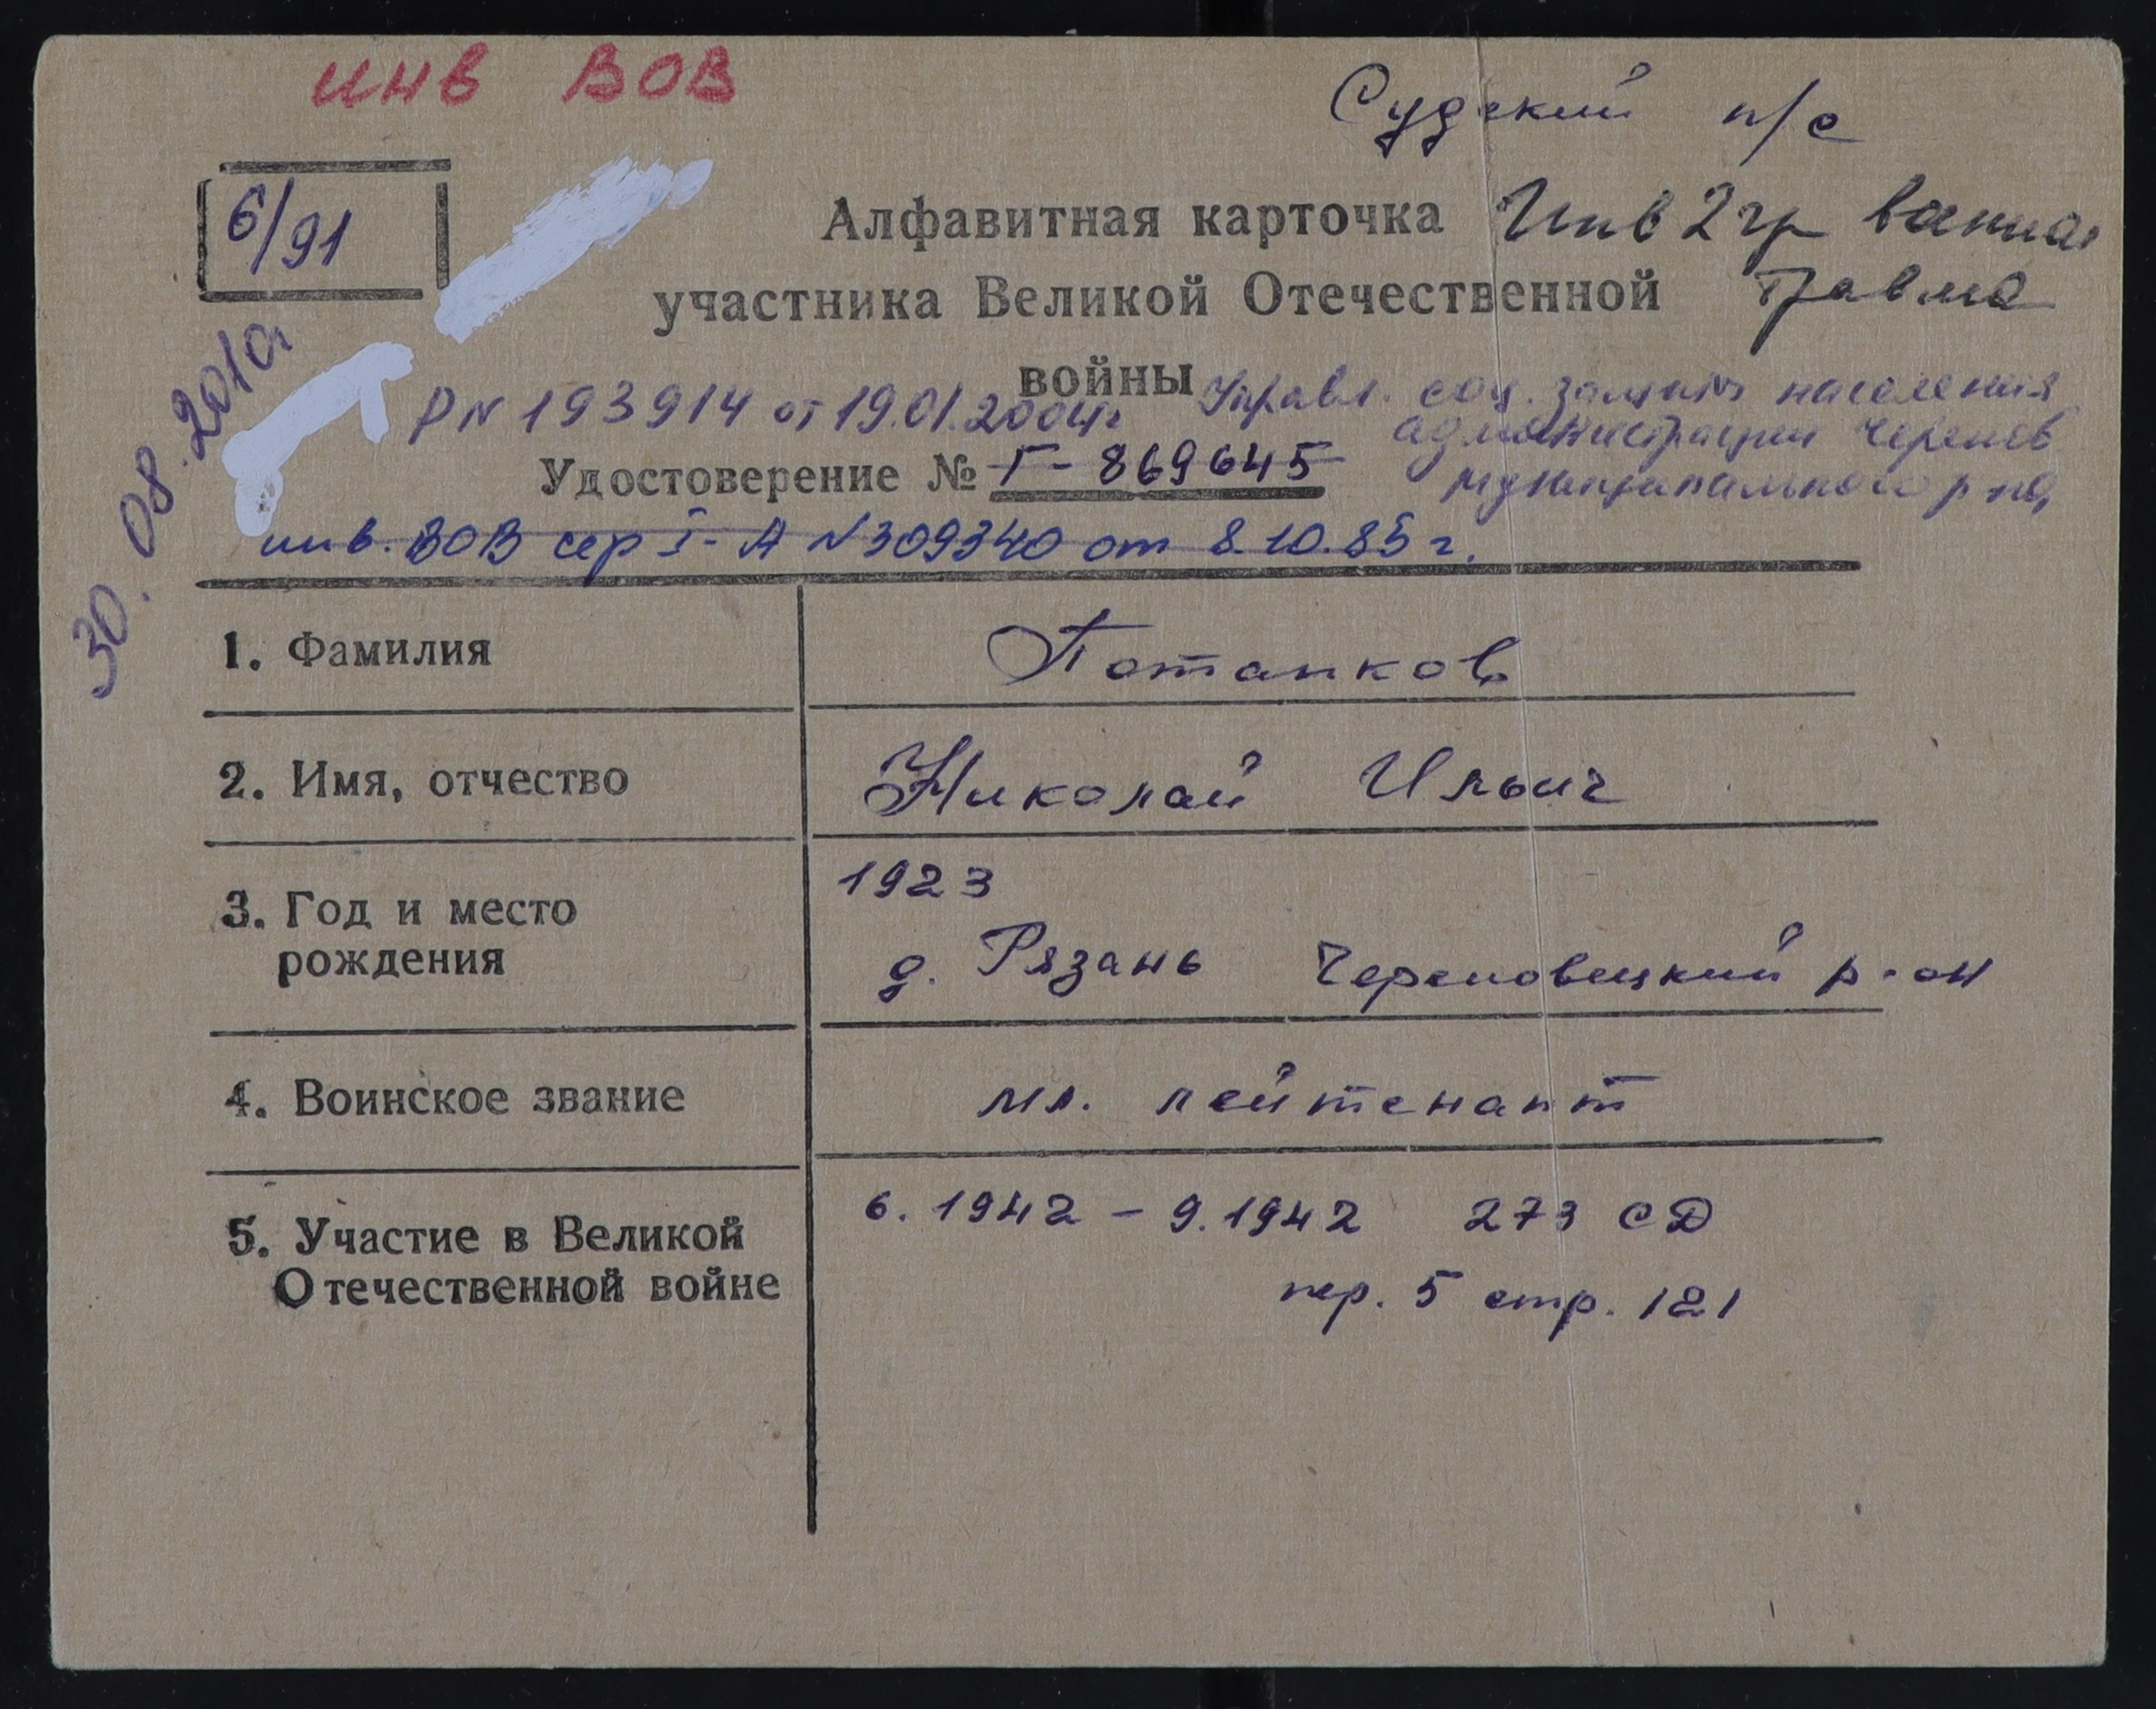 инв ВОВ
Судский п/с
6/91
Алфавитная карточка
Инв 2 гр военная
травма
участника Великой Отечественной
войны
30.08.2010г
Р № 193914 от 19.01.2004г Управл. соц. защиты населения
администрации Черепов
муниципального р-на
Удостоверение № Г-869645
инв. ВОВ сер I-А №309340 от 8.10.85 г.
1. Фамилия
Потанков
2. Имя, отчество
Николай Ильич
3. Год и место
рождения
1923
д. Рязань Череповецкий р-он
4. Воинское звание
мл. лейтенант
5. Участие в Великой
Отечественной войне
6.1942 - 9.1942 273 СД
пер. 5 стр. 121